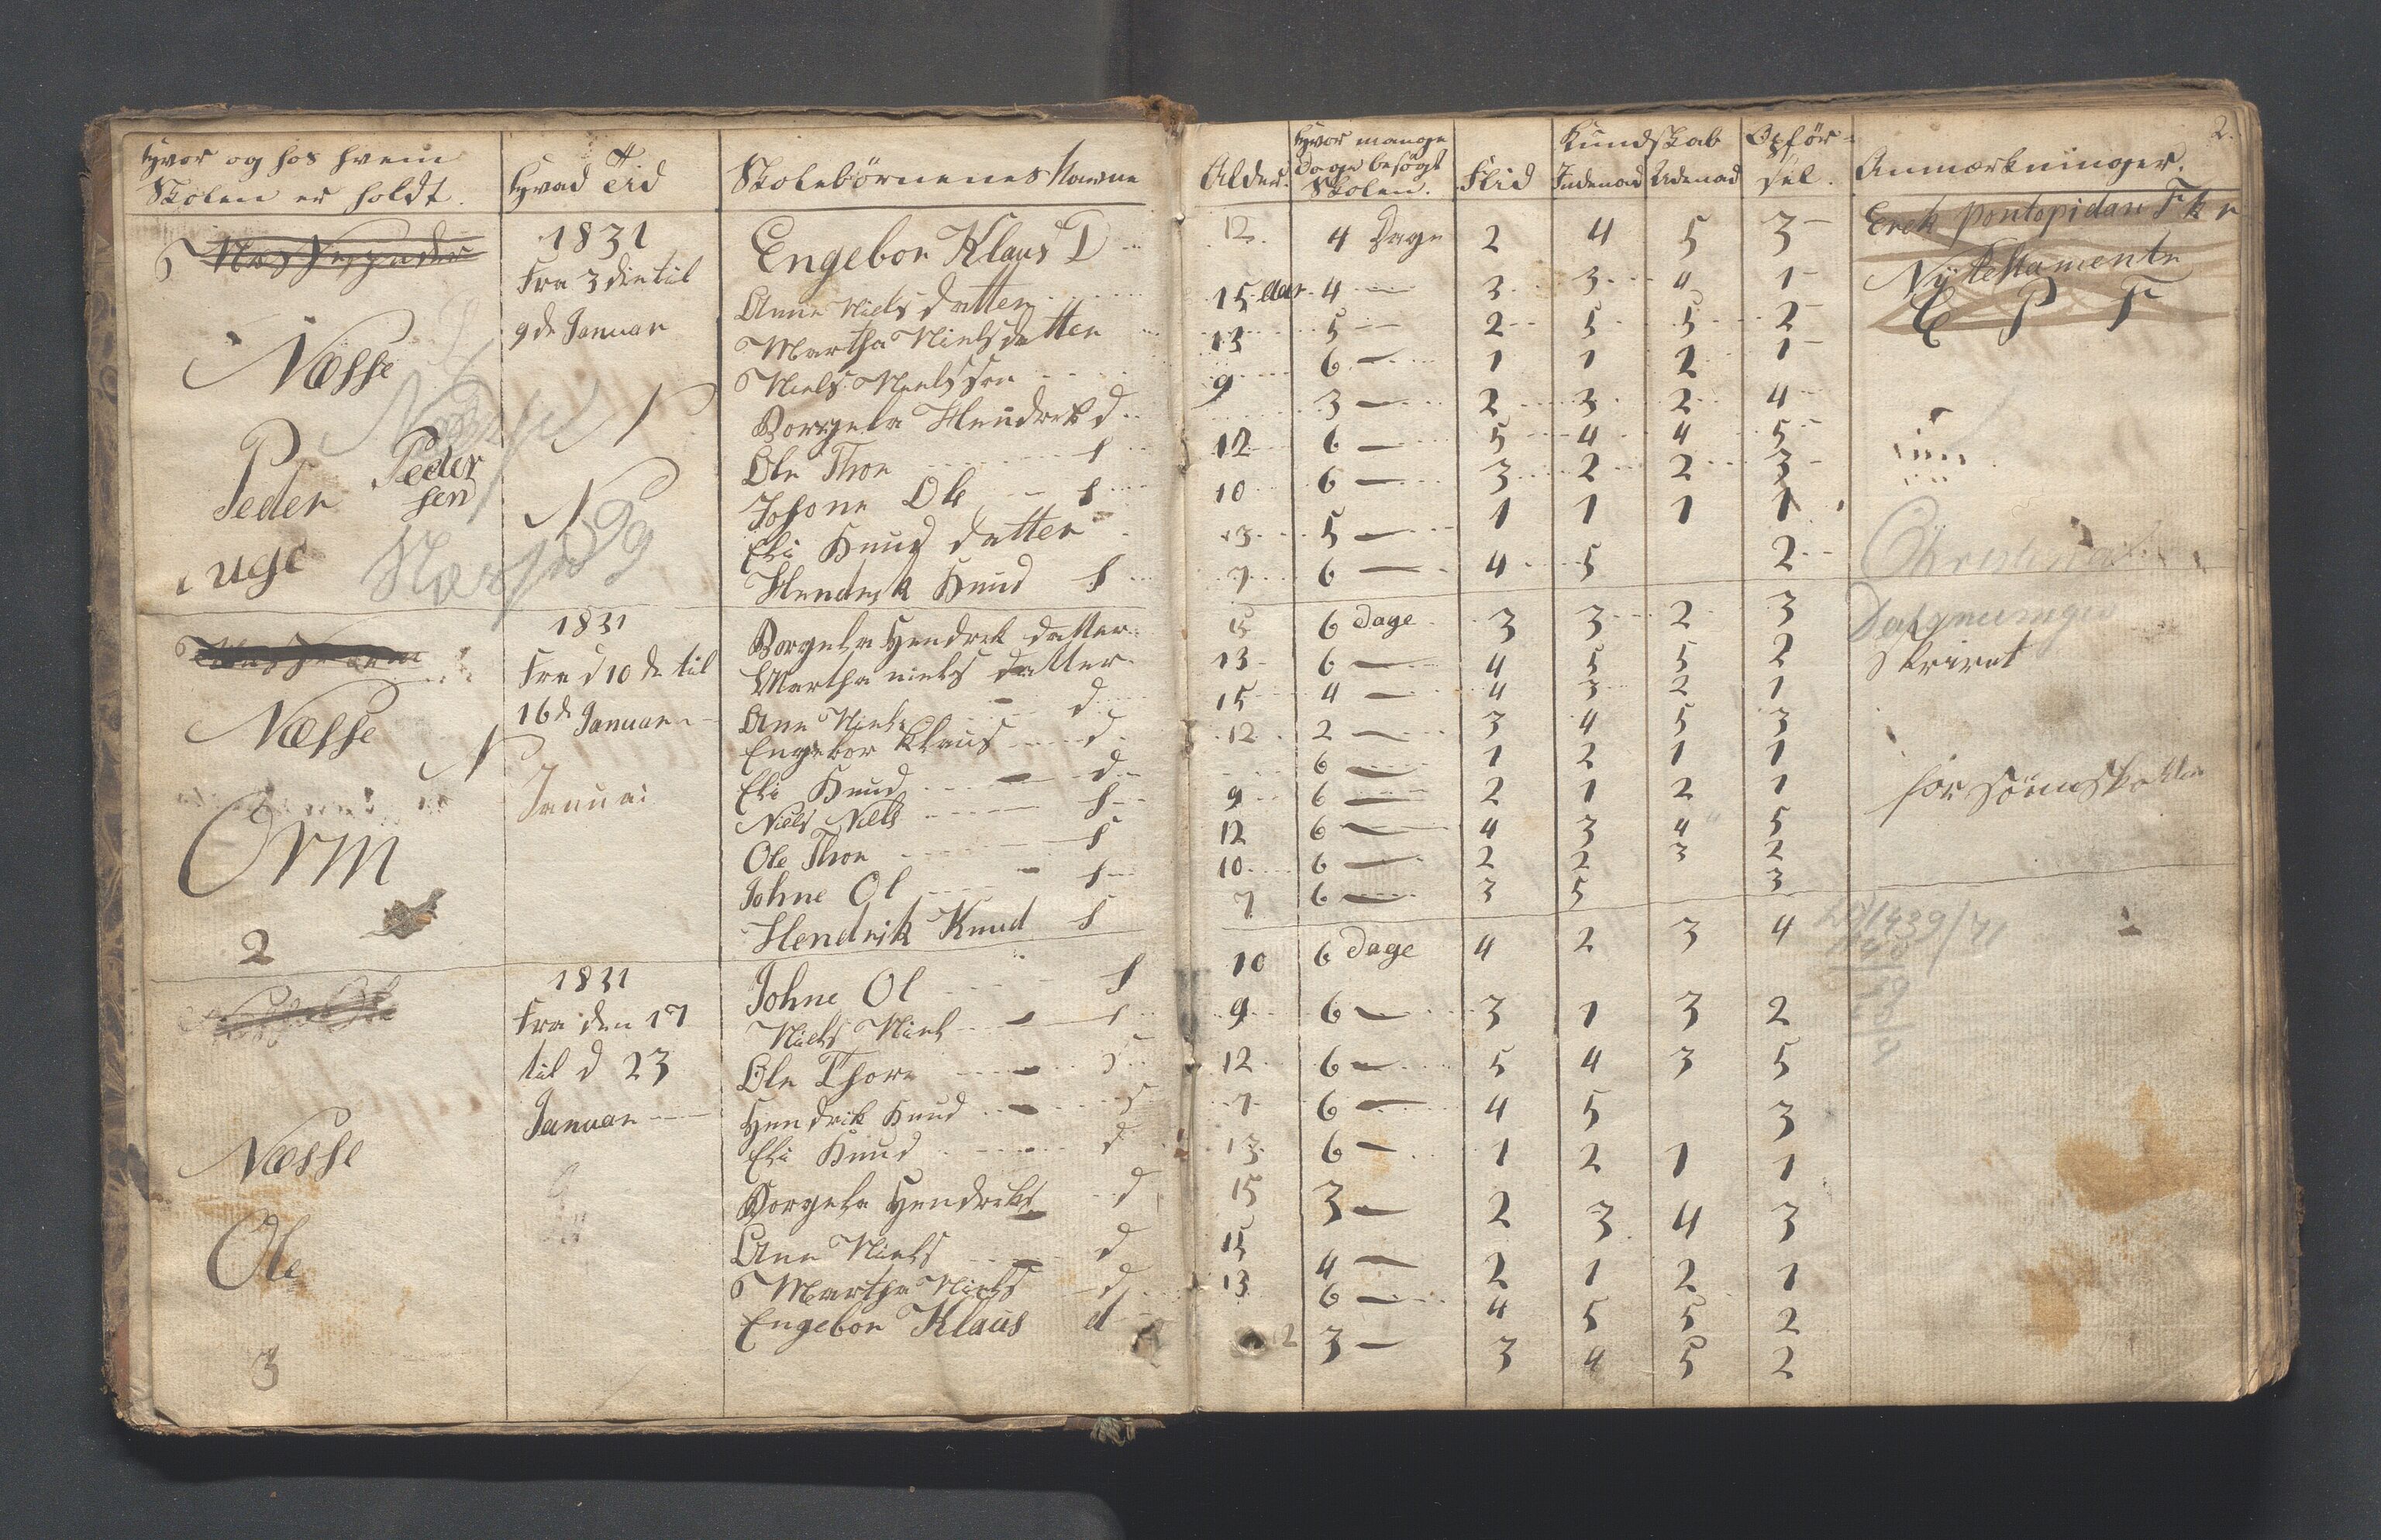 Hvor og hos hvem
Skolen er holdt.
Hvad Tid
Skolebørnenes Navne
Alder.
Hvor mange
Dage besøgt
Skolen.
Flid
Kundskab
Indenad Udenad
Opfør-
sel.
Anmærkninger.
2.
1831
Fra 3 die til
9de Januar
Næsse
Peder Peder
sen
uge
Engebor Klaus D 12. 4 Dage 2 4 5 3
Anne Niels datter 15 Aar 4 3 3 4 1
Martha Nielsdatter 13 5 2 5 5 2
Niels Nielssen 9 6 1 1 2 1
Borgela Hendrek d 3 2 3 2 4
Ole Thor s 12 6 5 4 4 5
Johone Ole s 10 6 3 2 2 3
Eli Knud datter 13 5 1 1 1 1
Hendrik Knud s 7 6 4 5 2
Erek Pontopidan
Ny Testamente
E P F
1831
Fra d 10 de til
16de Januar
Januai
Næsse
Orm
2
Borgela Hendrek datter 15 6 Dage 3 3 2 3
Martha niels datter 13 6 4 5 5 2
Ane Niels d 15 4 4 3 2 1
Engebor Klaus d 12 2 3 4 5 3
Eli Knud d 6 1 2 1 1
Niels Niels s 9 6 2 1 2 1
Ole Thor s 12 6 4 3 4 5
Johne Ol s 10 6 2 2 3 2
Hendrik Knud s 7 6 3 5 3
skrivet
1831
Fra den 17
til d 23
Januar
Næsse
Ole
3
Johne Ol s 10 6 Dage 4 2 3 4
Niels Niels s 9 6 3 1 3 2
Ole Thore s 12 6 5 4 3 5
Hendrik Knud s 7 6 4 5 3
Eli Knud d 13 6 1 2 1 1
Borgela Hendreks d 15 3 2 3 4 3
Ane Niels d 15 4 2 1 2 1
Martha Niels d 13 6 4 5 5 2
Engebor Klaus d 12 3 3 4 5 2